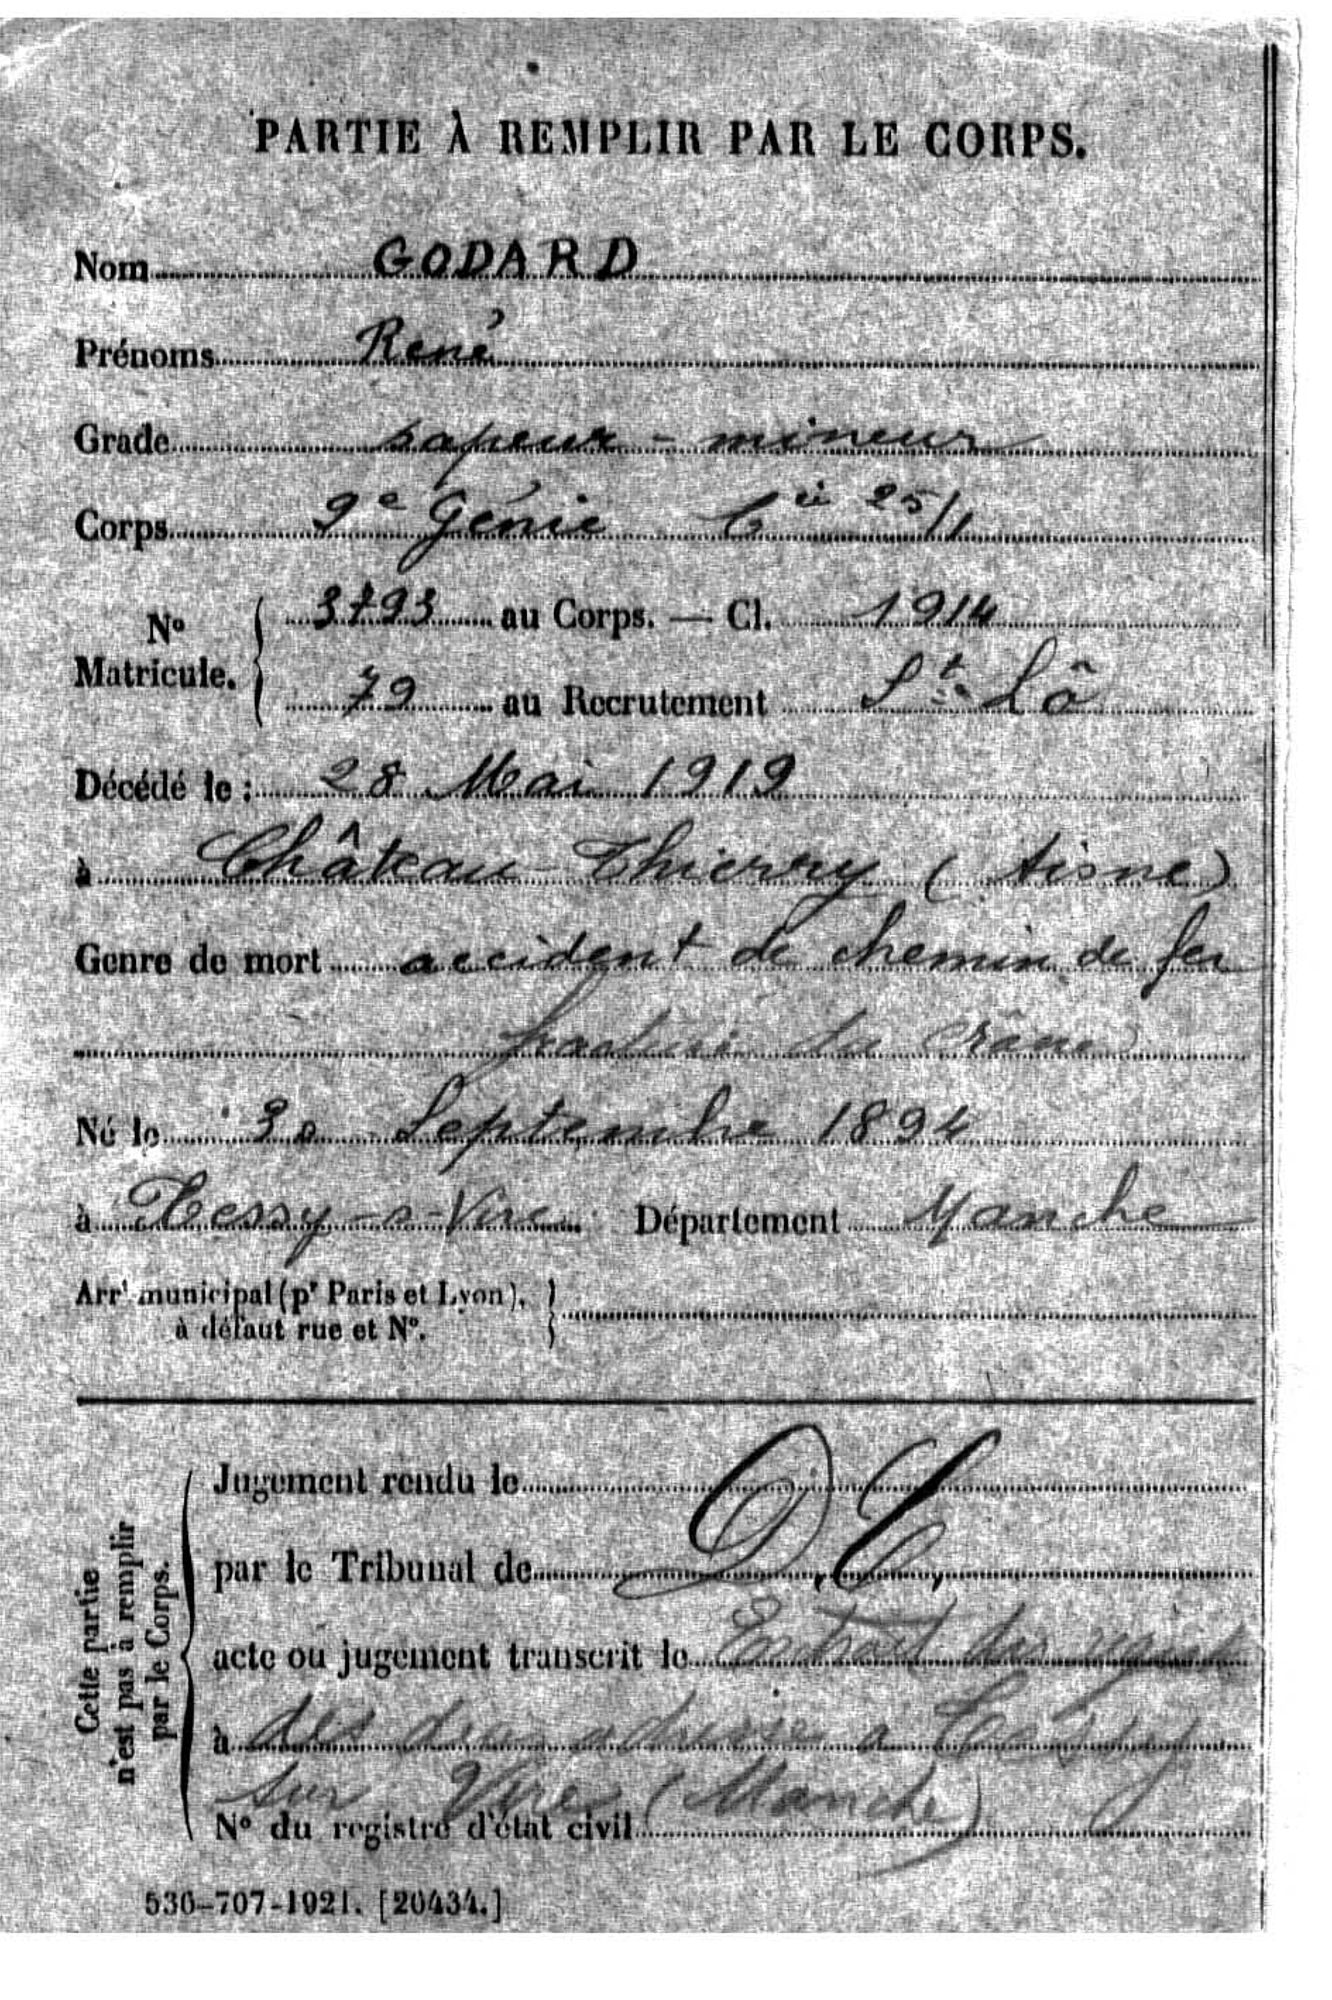 PARTIE À REMPLIR PAR LE CORPS.
Nom GODARD
Prénoms René
Grade sapeur - mineur
Corps 9e Génie Cie 25/1
No Matricule. 3793 au Corps. — Cl. 1914
79 au Recrutement St. Lô
Décédé le : 28 Mai 1919
à Château-Thierry (Aisne)
Genre de mort accident de chemin de fer
fracture du crâne
Né le 30 Septembre 1894
à Tessy-s-Vire. Département Manche
Arrt municipal (pr Paris et Lyon),
à défaut rue et No.
Cette partie
n'est pas à remplir
par le Corps.
Jugement rendu le
par le Tribunal de D.C.
acte ou jugement transcrit le Extrait
à des adressé a Tessy
sur Vire (Manche)
No du registre d'état civil
530-707-1921. [20434.]